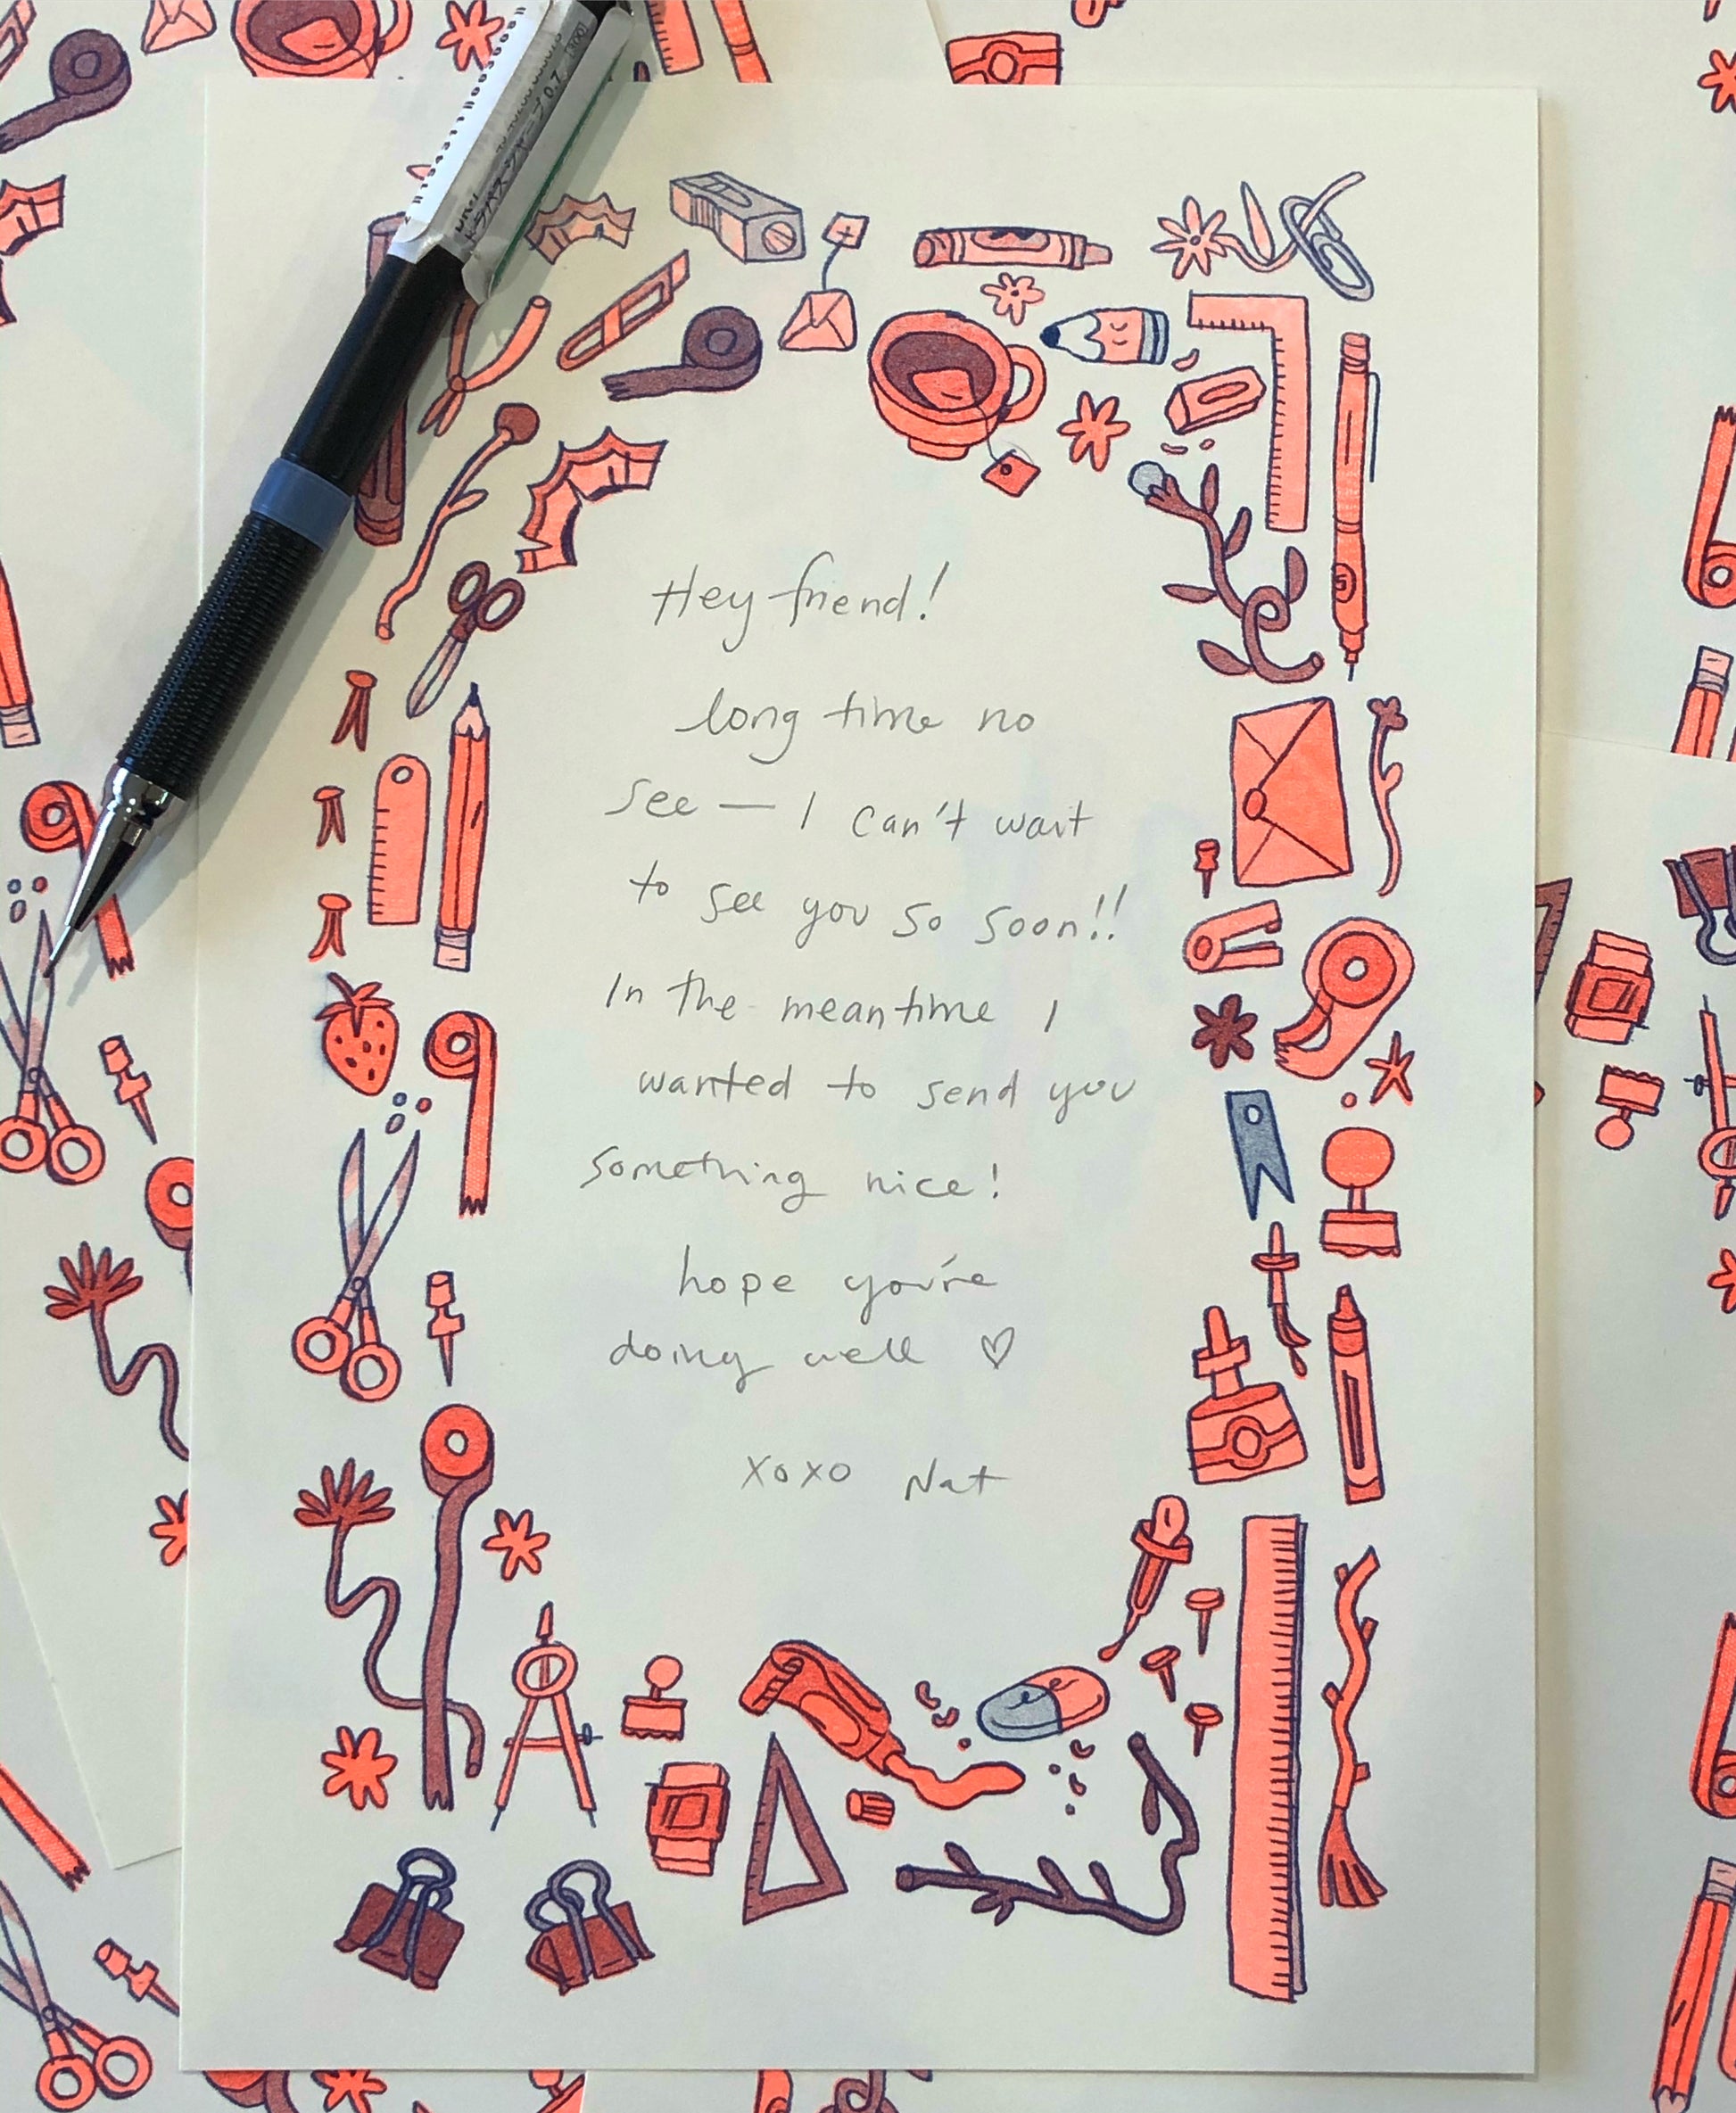 Hey friend!
long time no
see — I can't wait
to see you so soon!!
In the meantime I
wanted to send you
something nice!
hope you're
doing well ♡
xoxo Nat
uni
0.7
5